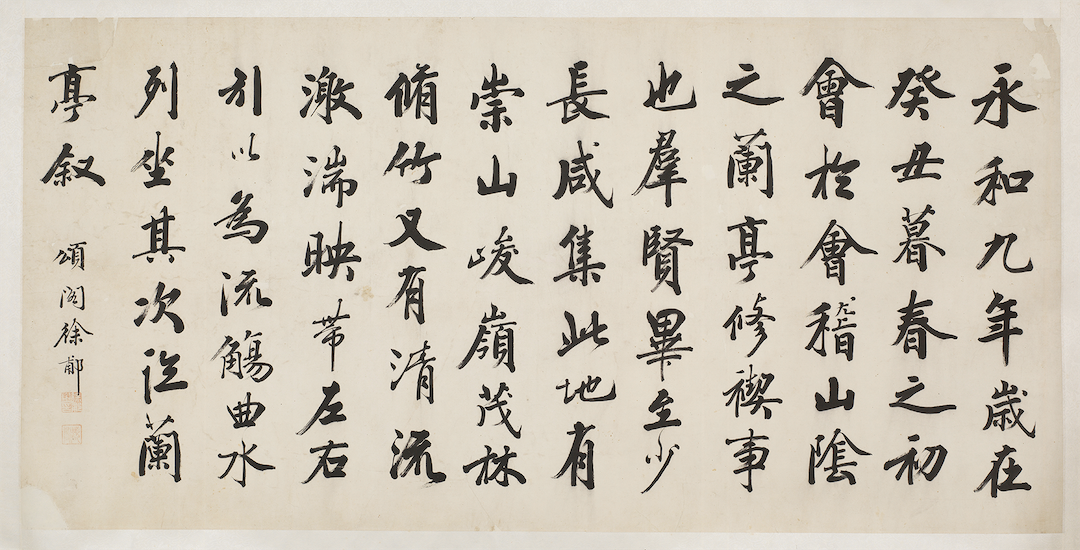 永和九年歲在
癸丑暮春之初
會於會稽山陰
之蘭亭修禊事
也羣賢畢至少
長咸集此地有
崇山峻嶺茂林
脩竹又有清流
激湍映帶左右
引以為流觴曲水
列坐其次詎蘭
亭叙
頌閣徐郙